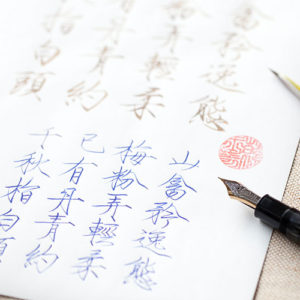 禽矜逸態
弄輕柔
丹青約
指白頭
山禽矜逸態
梅粉弄輕柔
已有丹青約
千秋指白頭